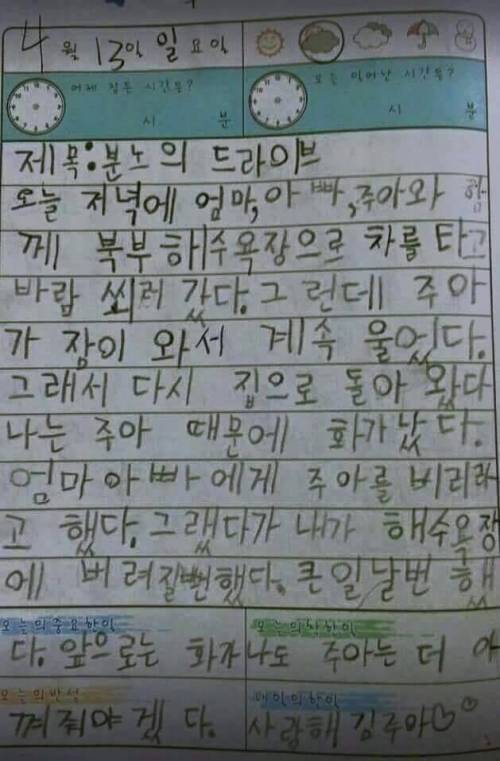 4월 13일 일요일
어제 잠든 시간은? 오늘 일어난 시간은?
시 분 시 분
제목:분노의 드라이브
오늘 저녁에 엄마,아빠,주아와 함
께 북부해수욕장으로 차를 타고
바람 쐬러 갔다.그런데 주아
가 잠이 와서 계속 울었다.
그래서 다시 집으로 돌아 왔다
나는 주아 때문에 화가 났다.
엄마 아빠에게 주아를 버리라
고 했다.그랬다가 내가 해수욕장
에 버려질뻔했다.큰일날번 했
오늘의 중요한일 오늘의 착한일
다.앞으로는 화가나도 주아는 더 아
오늘의 반성 내일의 할일
껴줘야겠다.사랑해 김주아♡♡